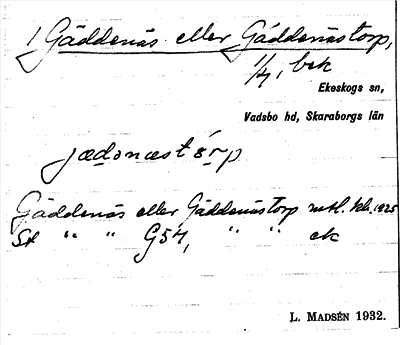 1 Gäddenäs eller Gäddenästorp,
1/4, bek
Ekeskogs sn,
Vadsbo hd, Skaraborgs län
jædonæstörp
Gäddenäs eller Gäddenästorp mtl. kb. 1825
St " " G54, " " ek
L. MADSÉN 1932.